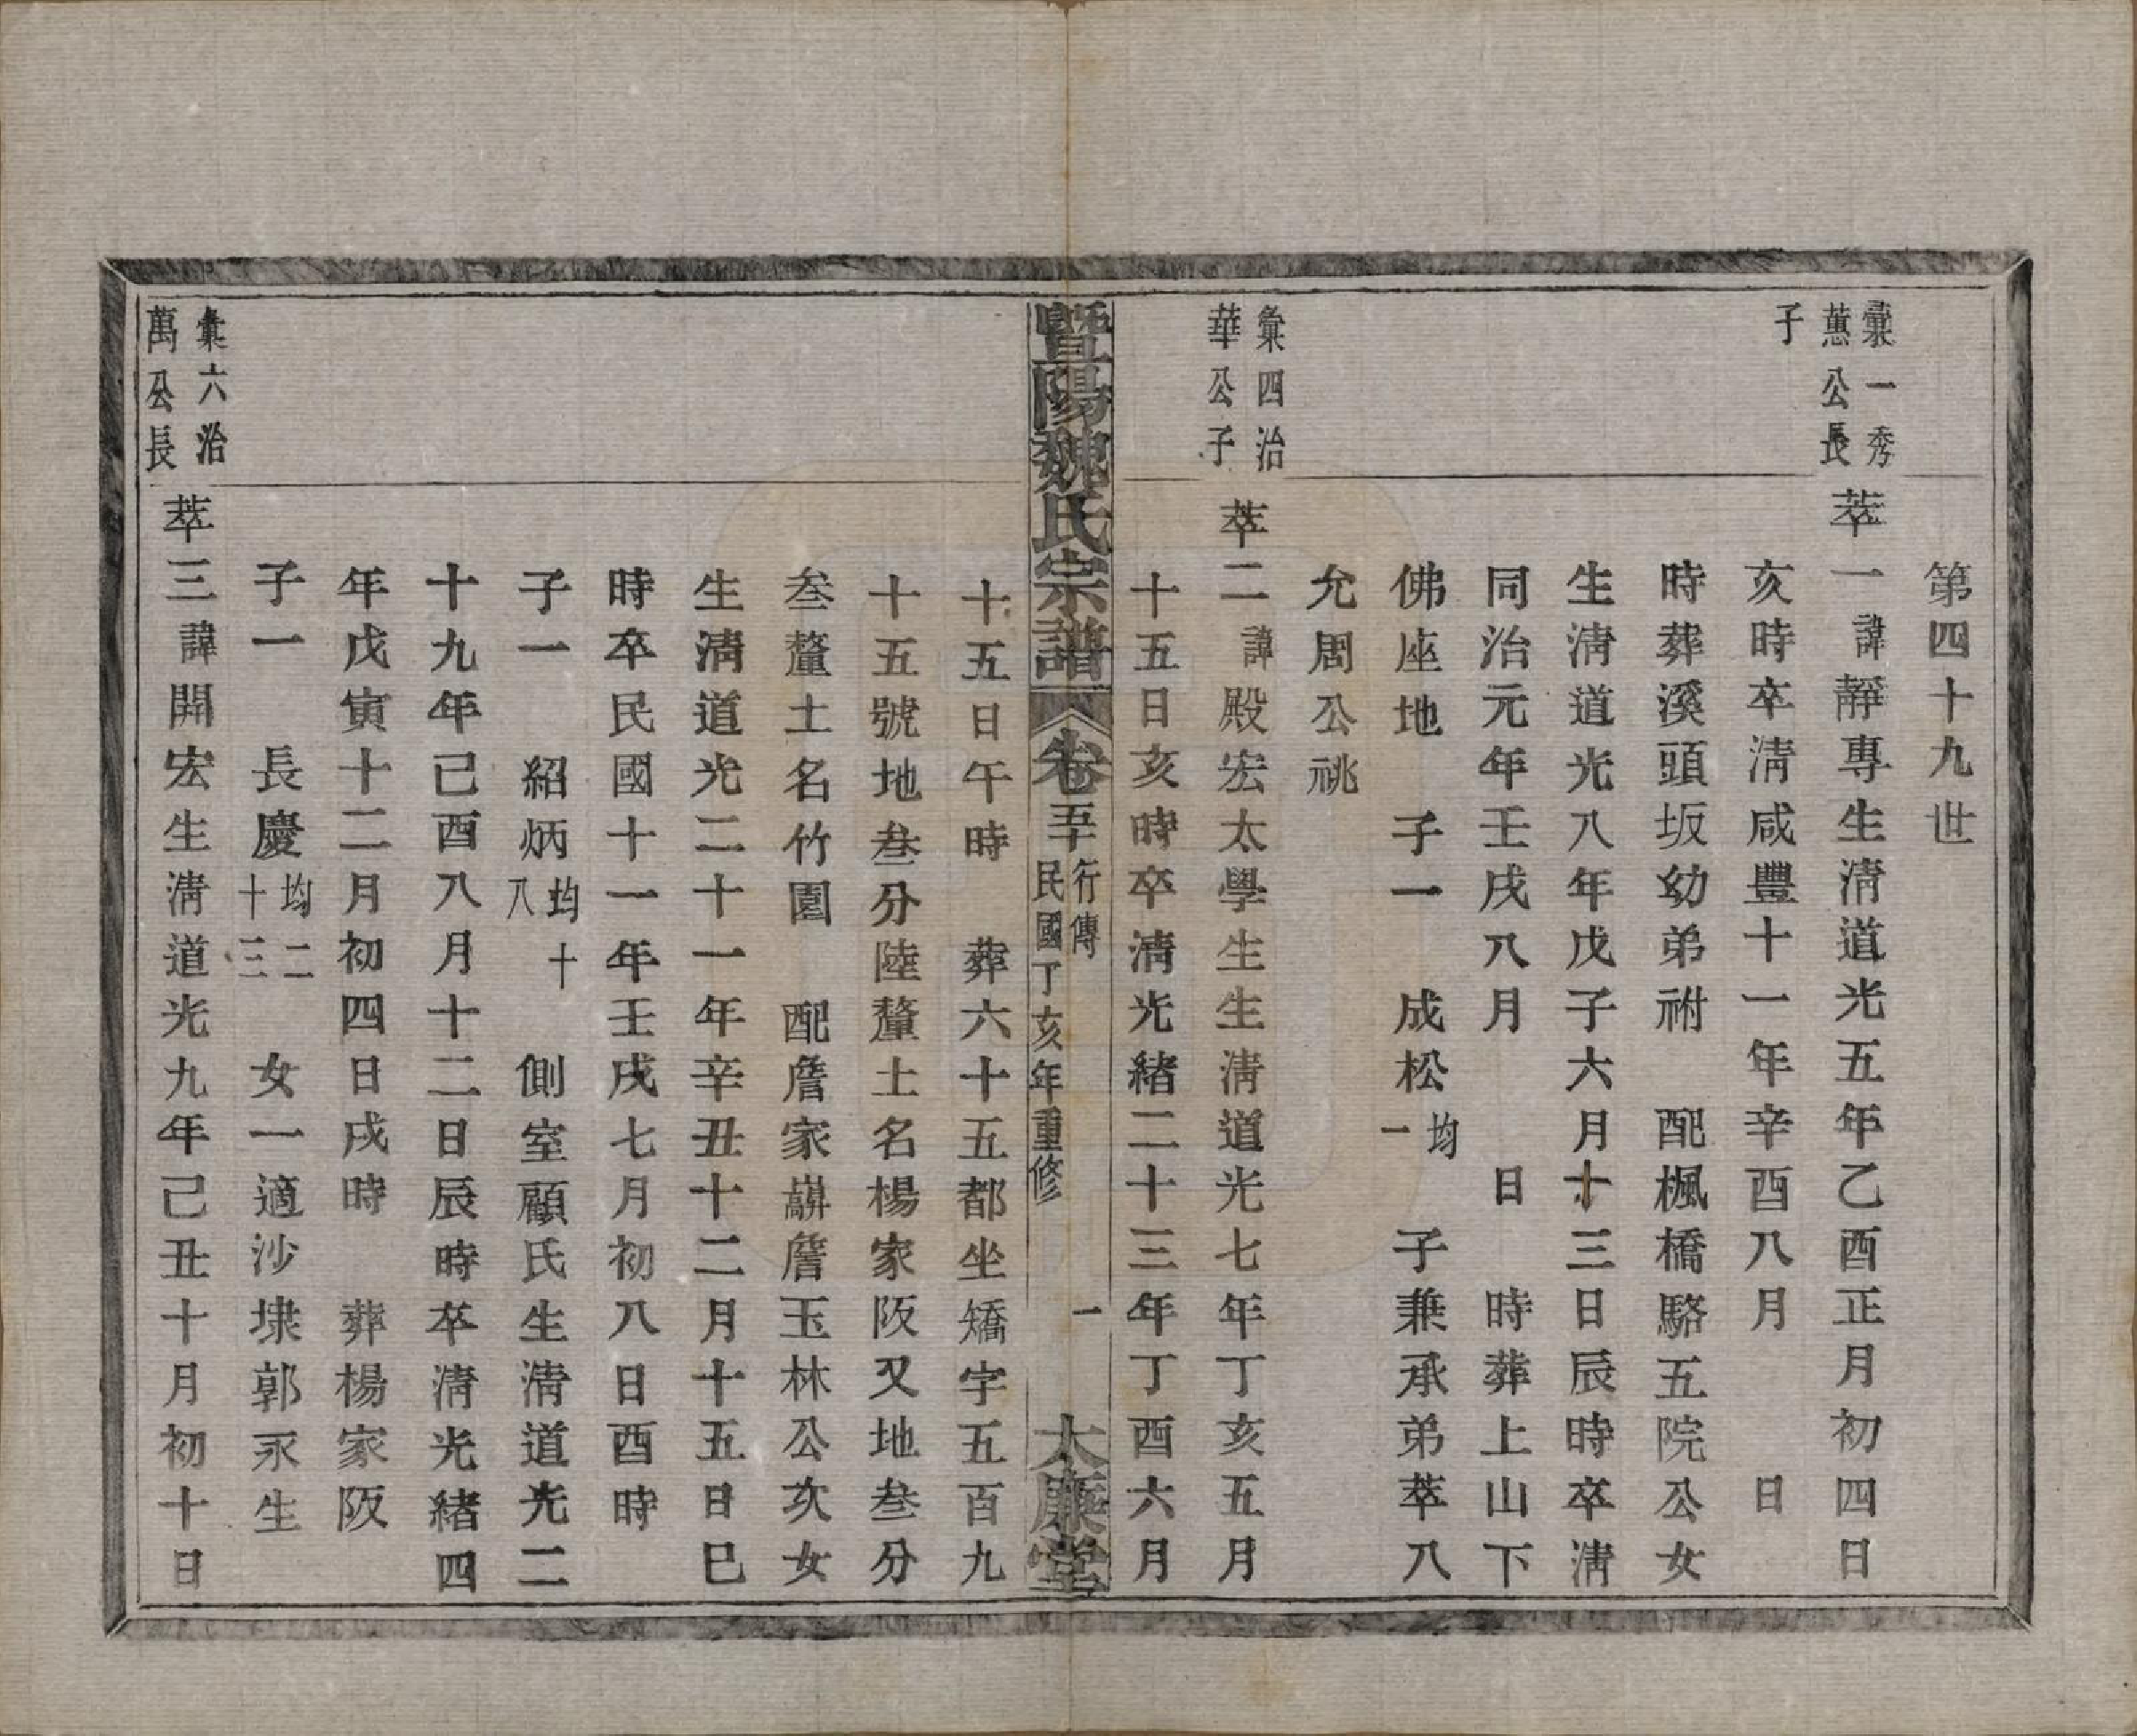 第四十九世
彙一秀
蕙公長
子
萃一諱靜專生淸道光五年乙酉正月初四日
亥時卒淸咸豐十一年辛酉八月　日
時葬溪頭坂幼弟祔　配楓橋駱五院公女
生淸道光八年戊子六月十三日辰時卒淸
同治元年壬戌八月　日　時葬上山下
佛座地　子一　成松均一　子兼承弟萃八
允周公祧
彙四治
華公子
萃二諱殿宏太學生生淸道光七年丁亥五月
十五日亥時卒淸光緒二十三年丁酉六月
暨陽魏氏宗譜　卷五十　行傳　民國丁亥年重修　一　大廉堂
十五日午時　葬六十五都坐矯字五百九
十五號地叁分陸釐土名楊家阪又地叁分
叁釐土名竹園　配詹家詹玉林公次女
生淸道光二十一年辛丑十二月十五日巳
時卒民國十一年壬戌七月初八日酉時
子一　紹炳均十八　側室顧氏生淸道光二
十九年己酉八月十二日辰時卒淸光緒四
年戊寅十二月初四日戌時　葬楊家阪
子一　長慶均二十三　女一適沙埭郭永生
彙六治
萬公長
萃三諱開宏生淸道光九年己丑十月初十日